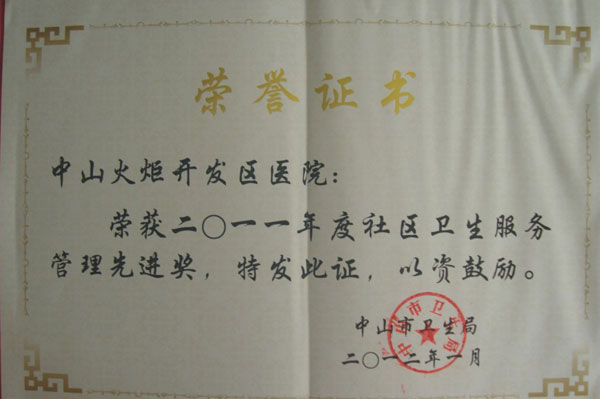 荣誉证书
中山火炬开发区医院：
荣获二〇一一年度社区卫生服务
管理先进奖，特发此证，以资鼓励。
中山市卫生局
二〇一二年一月
中山市卫生局